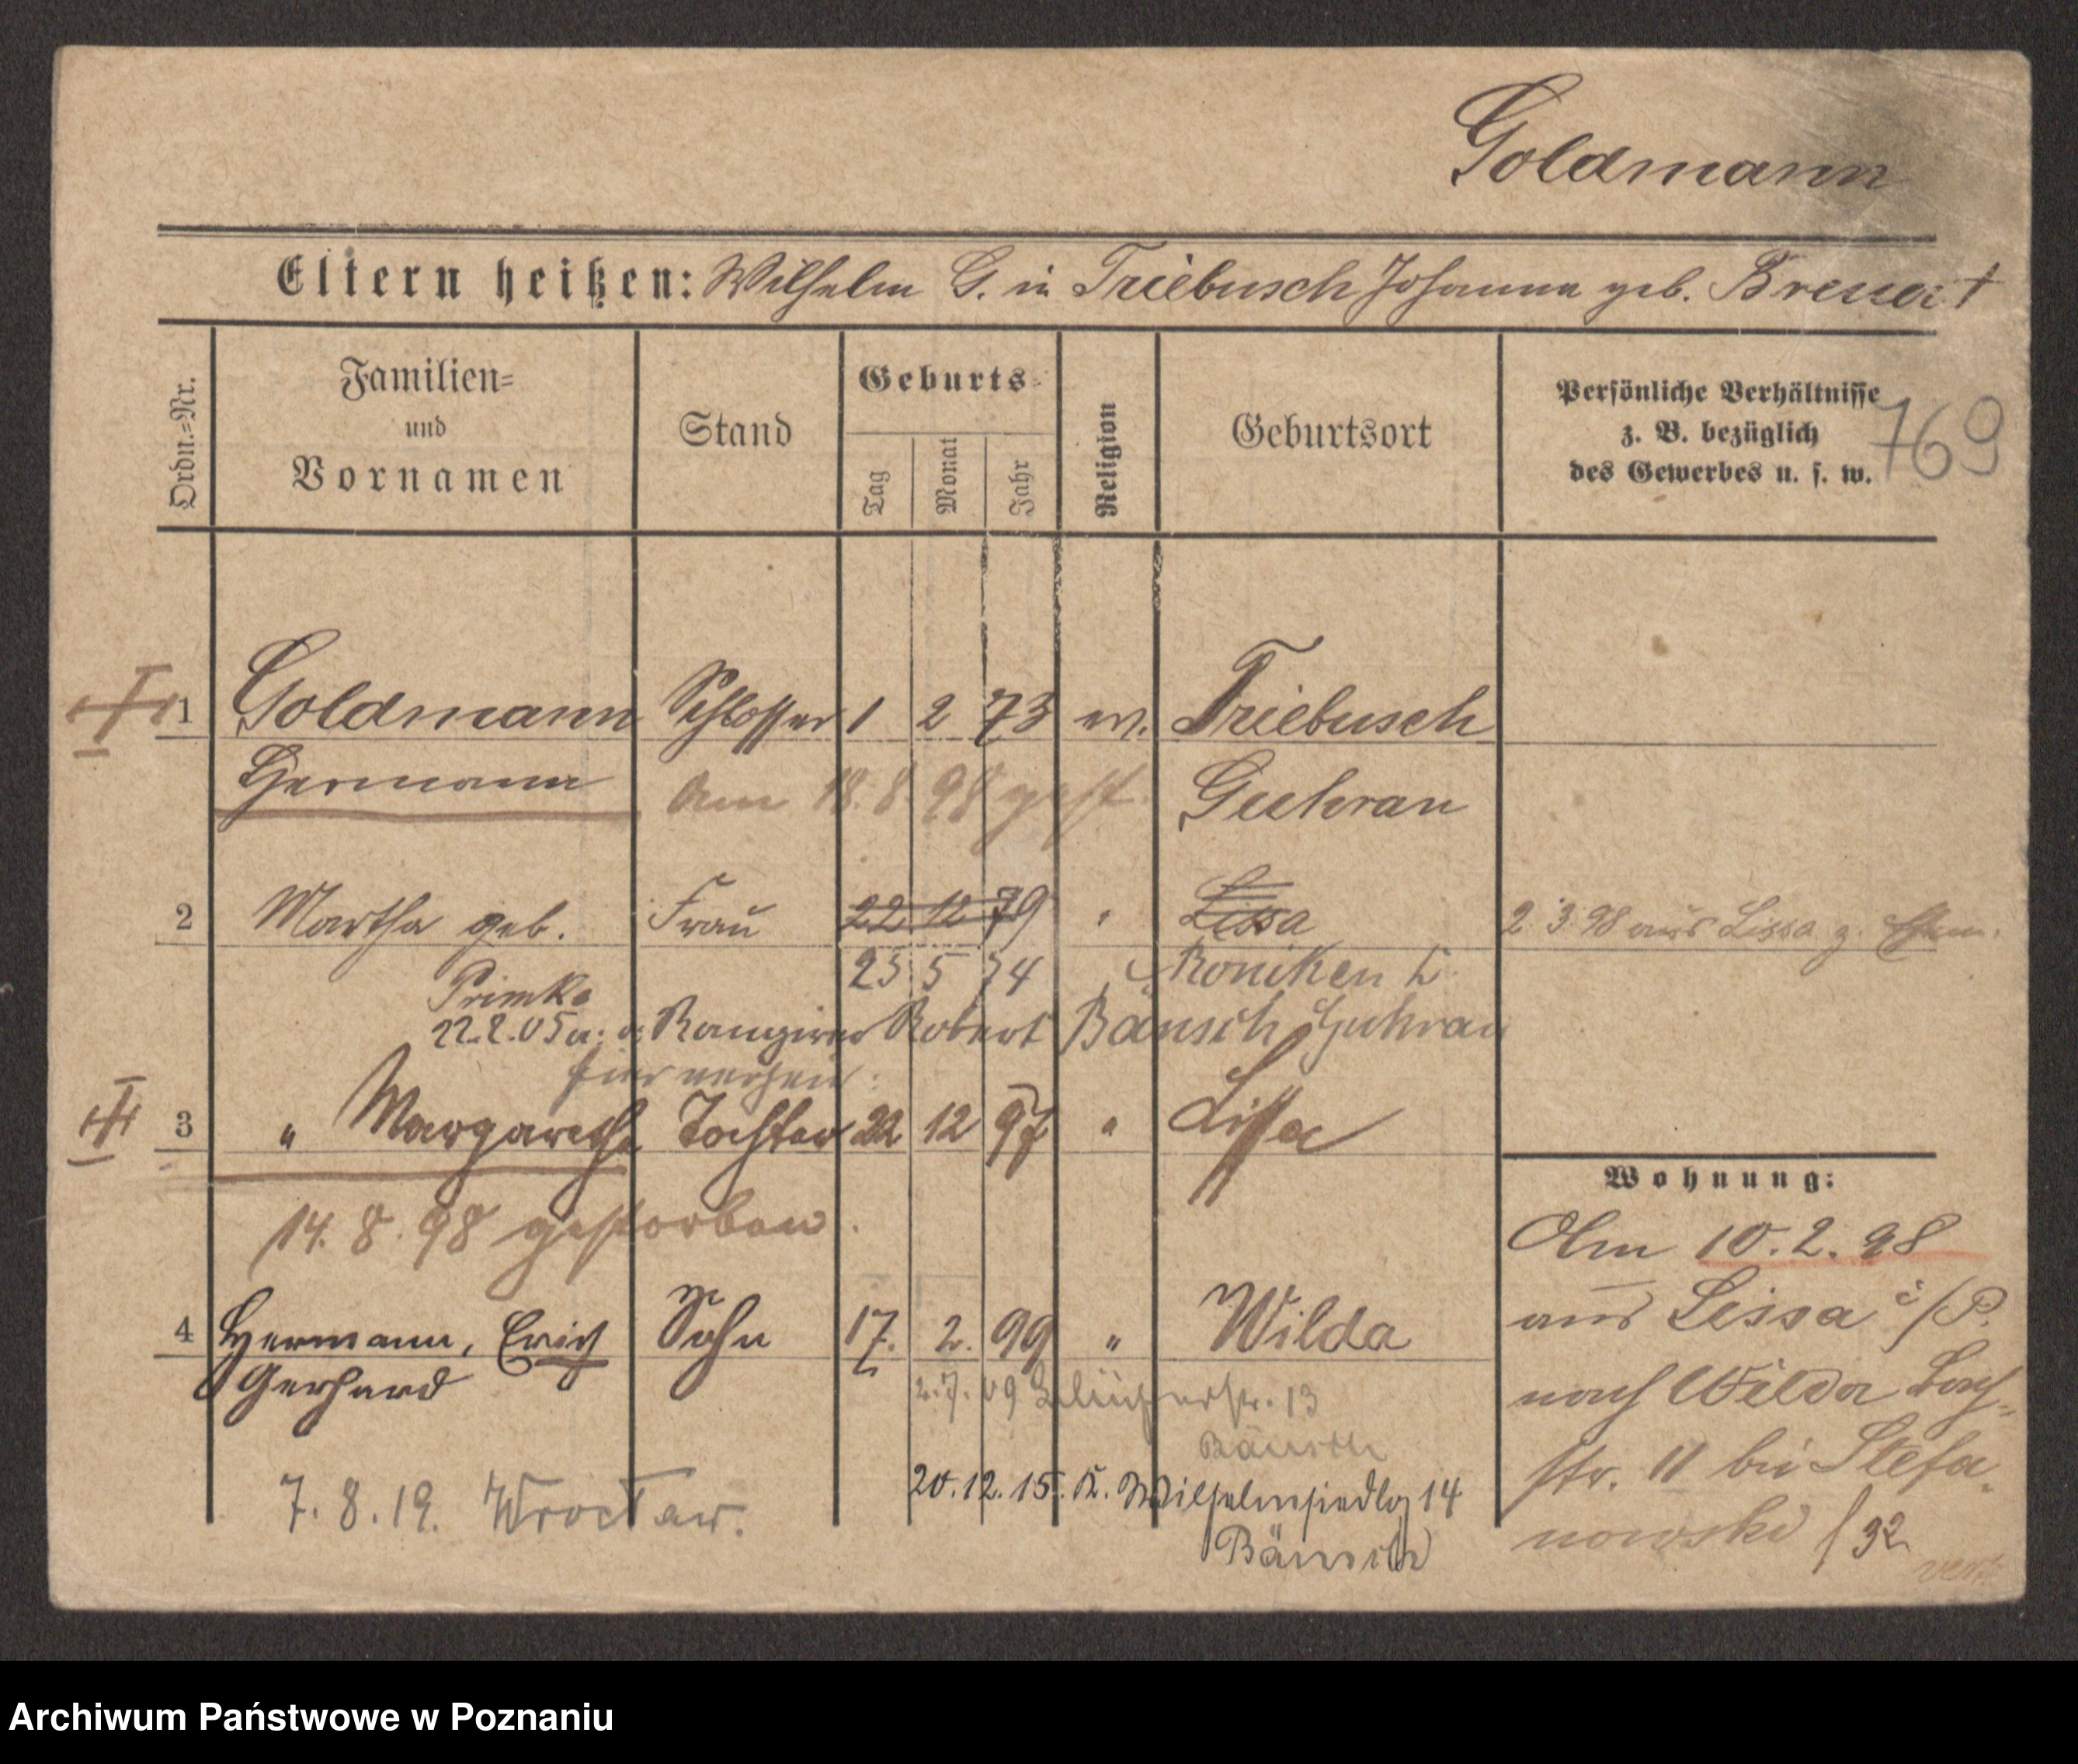 Goldmann
Eltern heißen: Wilhelm G. in Triebusch Johanna geb. †
Ordn.-Nr.
Familien-
und
Vornamen
Stand
Geburts-
Tag
Monat
Jahr
Religion
Geburtsort
Persönliche Verhältnisse
z. B. bezüglich
des Gewerbes u. s. w.
769
1 Goldmann Schlosser 1 2 73 ev. Triebusch
Hermann Am 18.8.98 gest. Guhrau
2 Martha geb. Frau 22 12 79 " Lissa 2.3.98 aus Lissa z.
Primke 25 5 74 Kroniken
22.2.05 Rangierer Robert Bänsch Guhrau
3 " Margarethe Tochter 22 12 97 " Lissa
14.8.98 gestorben.
4 Hermann, Erich Sohn 17. 2. 99 " Wilda
Gerhard
2.7.09 Blücherstr. 13
Bänsch
20.12.15. K. Wilhelmsiedlg 14
Bänsch
7.8.19. Wrocław.
Wohnung:
Am 10.2.98
aus Lissa i/P.
nach Wilda Bach-
str. 11 bei Stefa-
nowski / 32